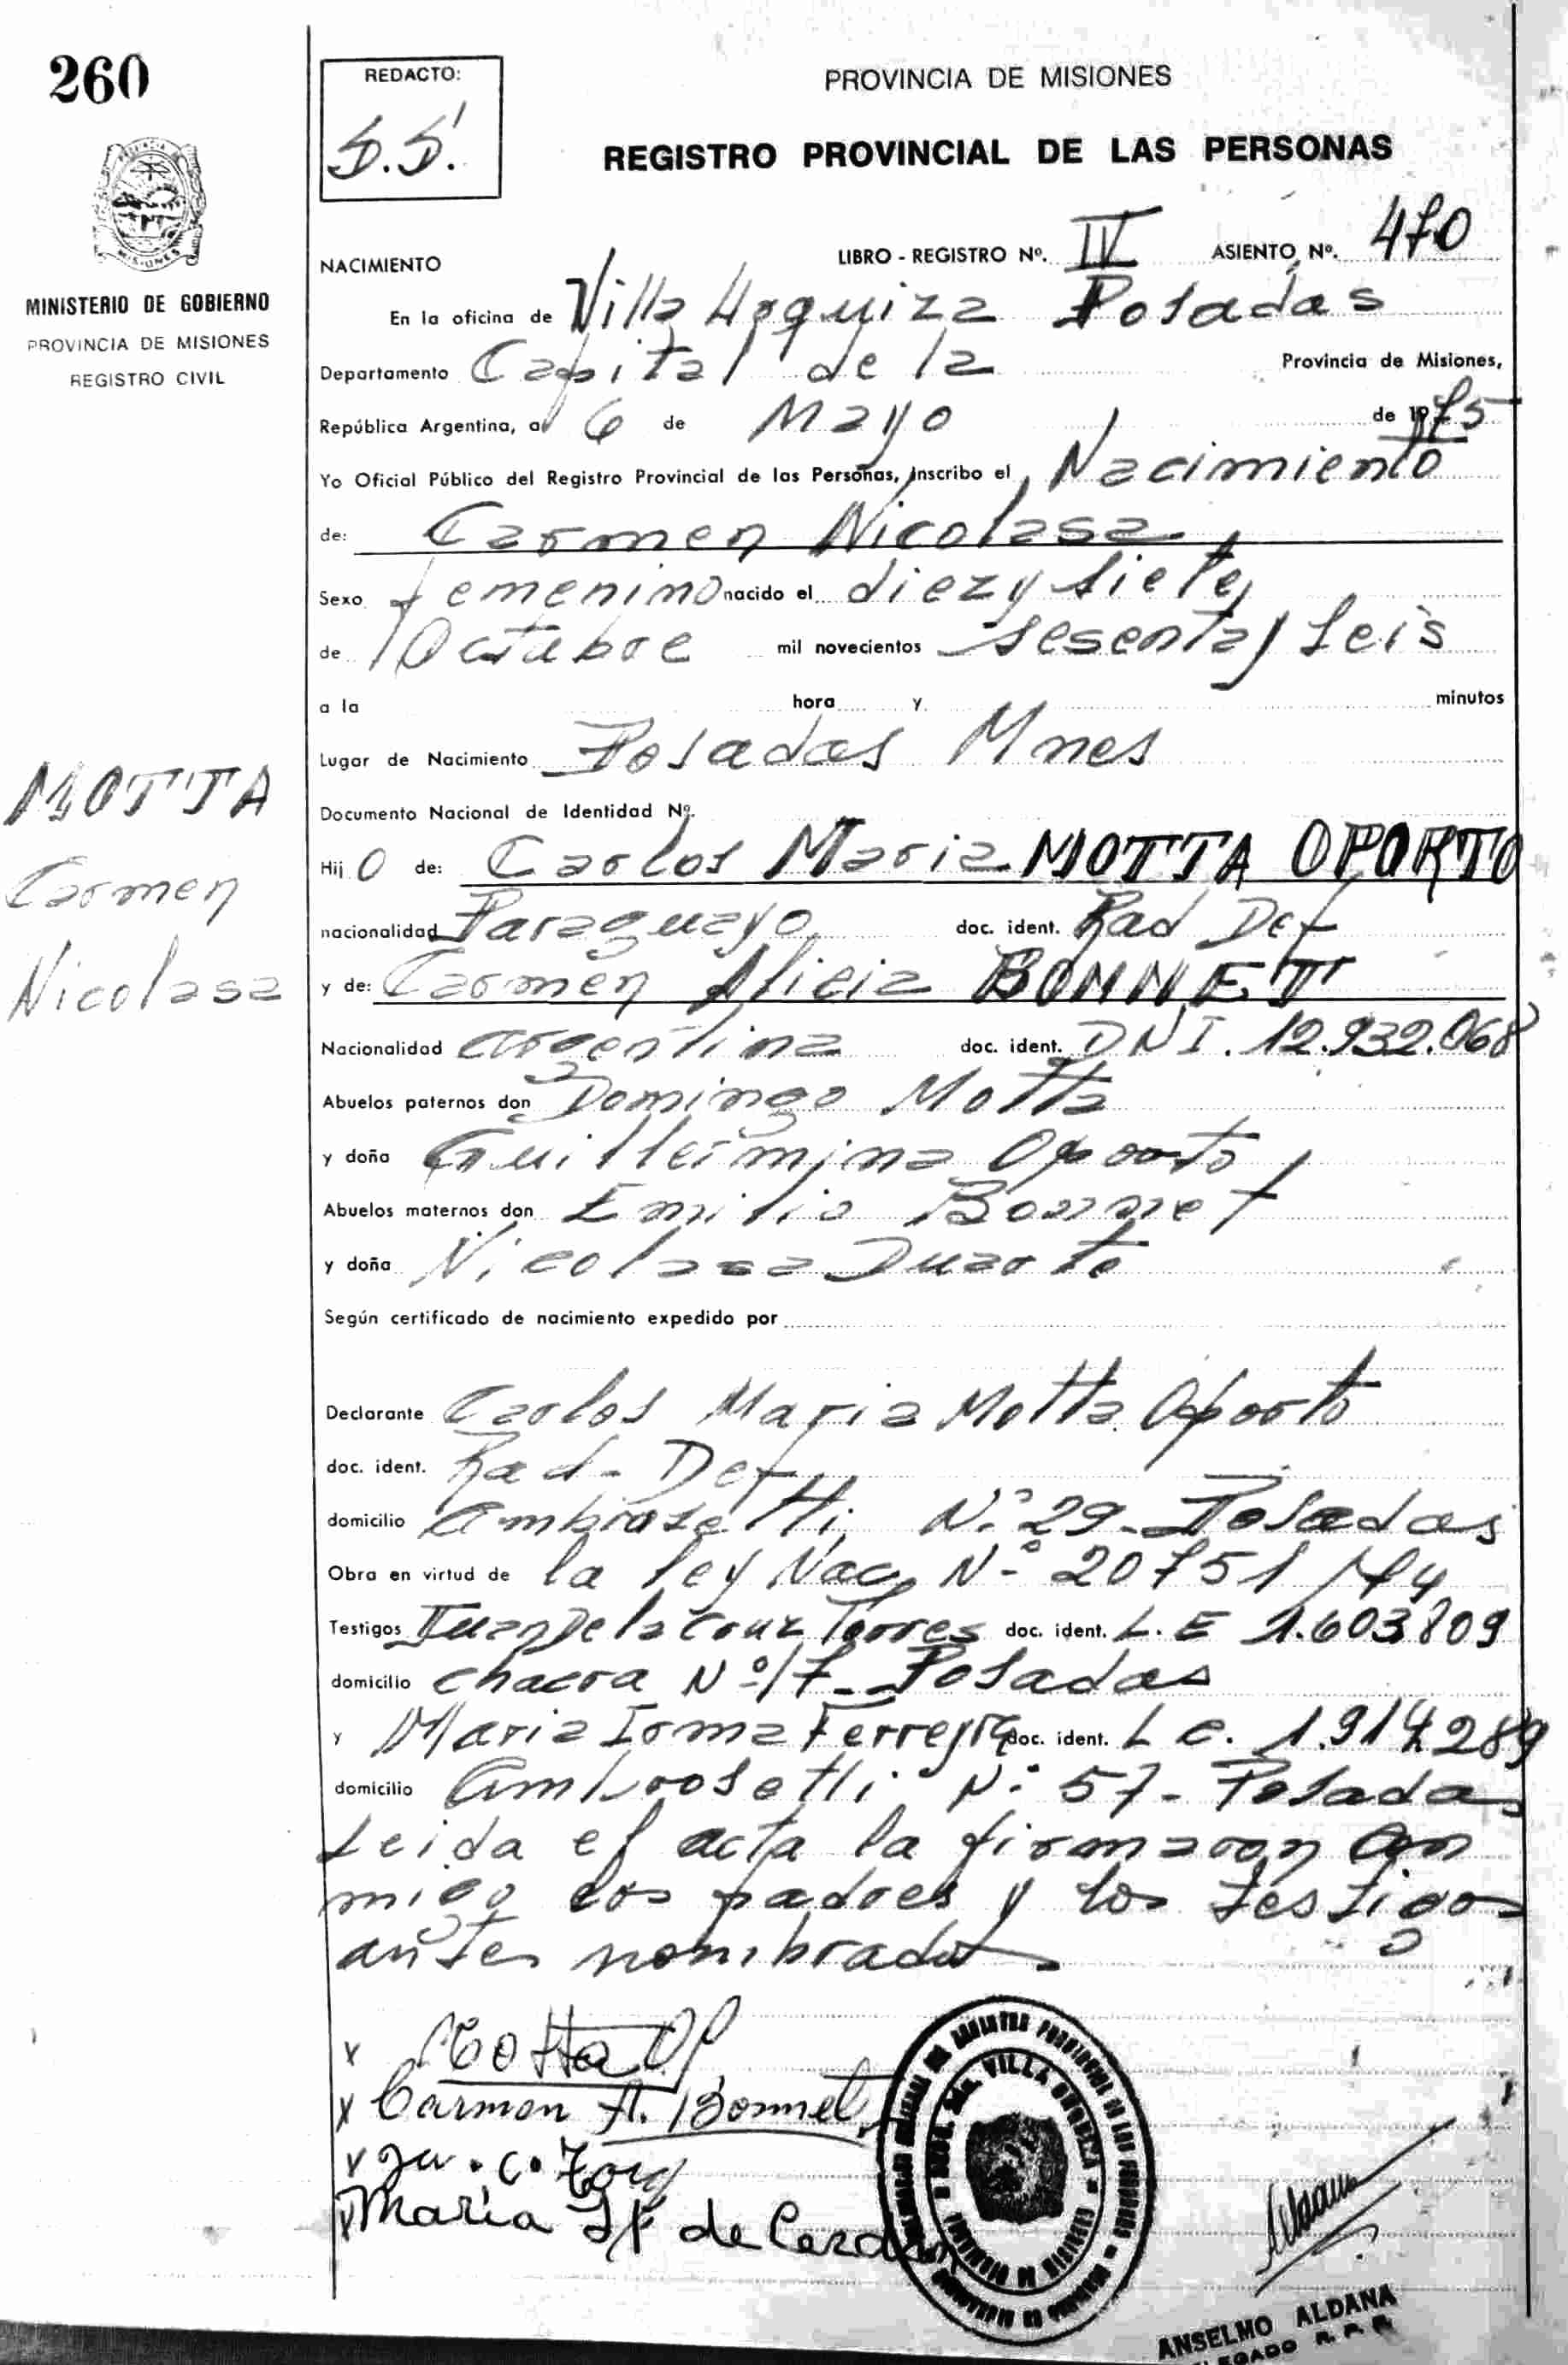 260
REDACTO:
S.S.
PROVINCIA DE MISIONES
REGISTRO PROVINCIAL DE LAS PERSONAS
MISIONES
MINISTERIO DE GOBIERNO
PROVINCIA DE MISIONES
REGISTRO CIVIL
NACIMIENTO LIBRO - REGISTRO Nº. IV ASIENTO Nº. 470
En la oficina de Villa Urquiza Posadas
Departamento Capital de la Provincia de Misiones,
República Argentina, a 6 de Mayo de 1975
Yo Oficial Público del Registro Provincial de las Personas, inscribo el Nacimiento
de: Carmen Nicolasa
Sexo femenino nacido el diez y siete
de Octubre mil novecientos sesenta y seis
a la hora y minutos
Lugar de Nacimiento Posadas Mnes
Documento Nacional de Identidad Nº.
MOTTA
Carmen
Nicolasa
Hijo de: Carlos Maria MOTTA OPORTO
nacionalidad Paraguayo doc. ident. Rad Def
y de: Carmen Alicia BONNET
Nacionalidad argentina doc. ident. DNI. 12.932.068
Abuelos paternos don Domingo Motta
y doña Guillermina Oporto
Abuelos maternos don Emilio Bonnet
y doña Nicolasa Duarte
Según certificado de nacimiento expedido por
Declarante Carlos Maria Motta Oporto
doc. ident. Rad- Def
domicilio ambrosetti Nº 29- Posadas
Obra en virtud de la ley Nac Nº 20751/74
Testigos Juan De la Cruz Torres doc. ident. L. E 1.603809
domicilio chacra Nº 17- Posadas
y Maria Irma Ferreyra doc. ident. L c. 1.914.289
domicilio Ambrosetti Nº 57- Posadas
Leida el acta la firmaron con
migo los padres y los testigos
antes nombrados
x Motta Op
x Carmen A. Bonnet
x Ju. C. Torr
x Maria I F de
VILLA URQUIZA
ANSELMO ALDANA
DELEGADO R. P. P.